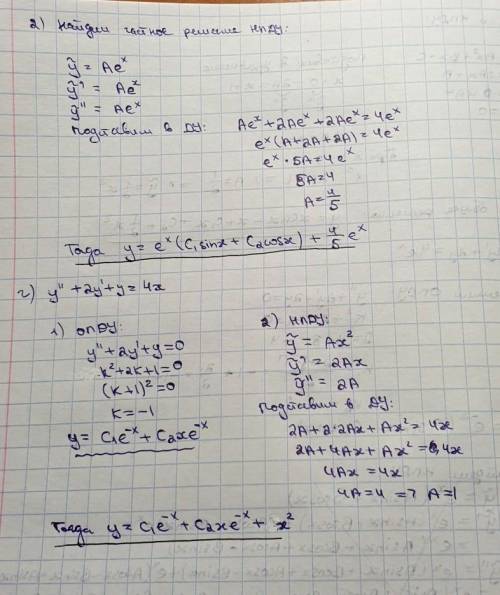 2) Найдём частное решение НПДУ:
ỹ = Ae^x
ỹ' = Ae^x
ỹ'' = Ae^x
Подставим в ДУ: Ae^x + 2Ae^x + 2Ae^x = 4e^x
e^x(A+2A+2A) = 4e^x
e^x · 5A = 4e^x
5A = 4
A = 4/5
Тогда y = e^x(C₁sinx + C₂cosx) + 4/5 e^x
г) y'' + 2y' + y = 4x
1) ОПДУ:
y'' + 2y' + y = 0
k² + 2k + 1 = 0
(k+1)² = 0
k = -1
y = C₁e^-x + C₂xe^-x
2) НПДУ:
ỹ = Ax²
ỹ' = 2Ax
ỹ'' = 2A
Подставим в ДУ:
2A + 2·2Ax + Ax² = 4x
2A + 4Ax + Ax² = 4x
4Ax = 4x
4A = 4 => A = 1
Тогда y = C₁e^-x + C₂xe^-x + x²